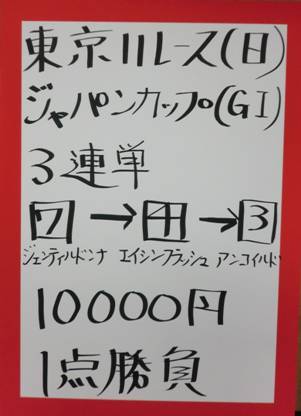 東京11レース(日)
ジャパンカップ(GI)
3連単
7→4→3
ジェンティルドンナ エイシンフラッシュ アンコイルド
10000円
1点勝負